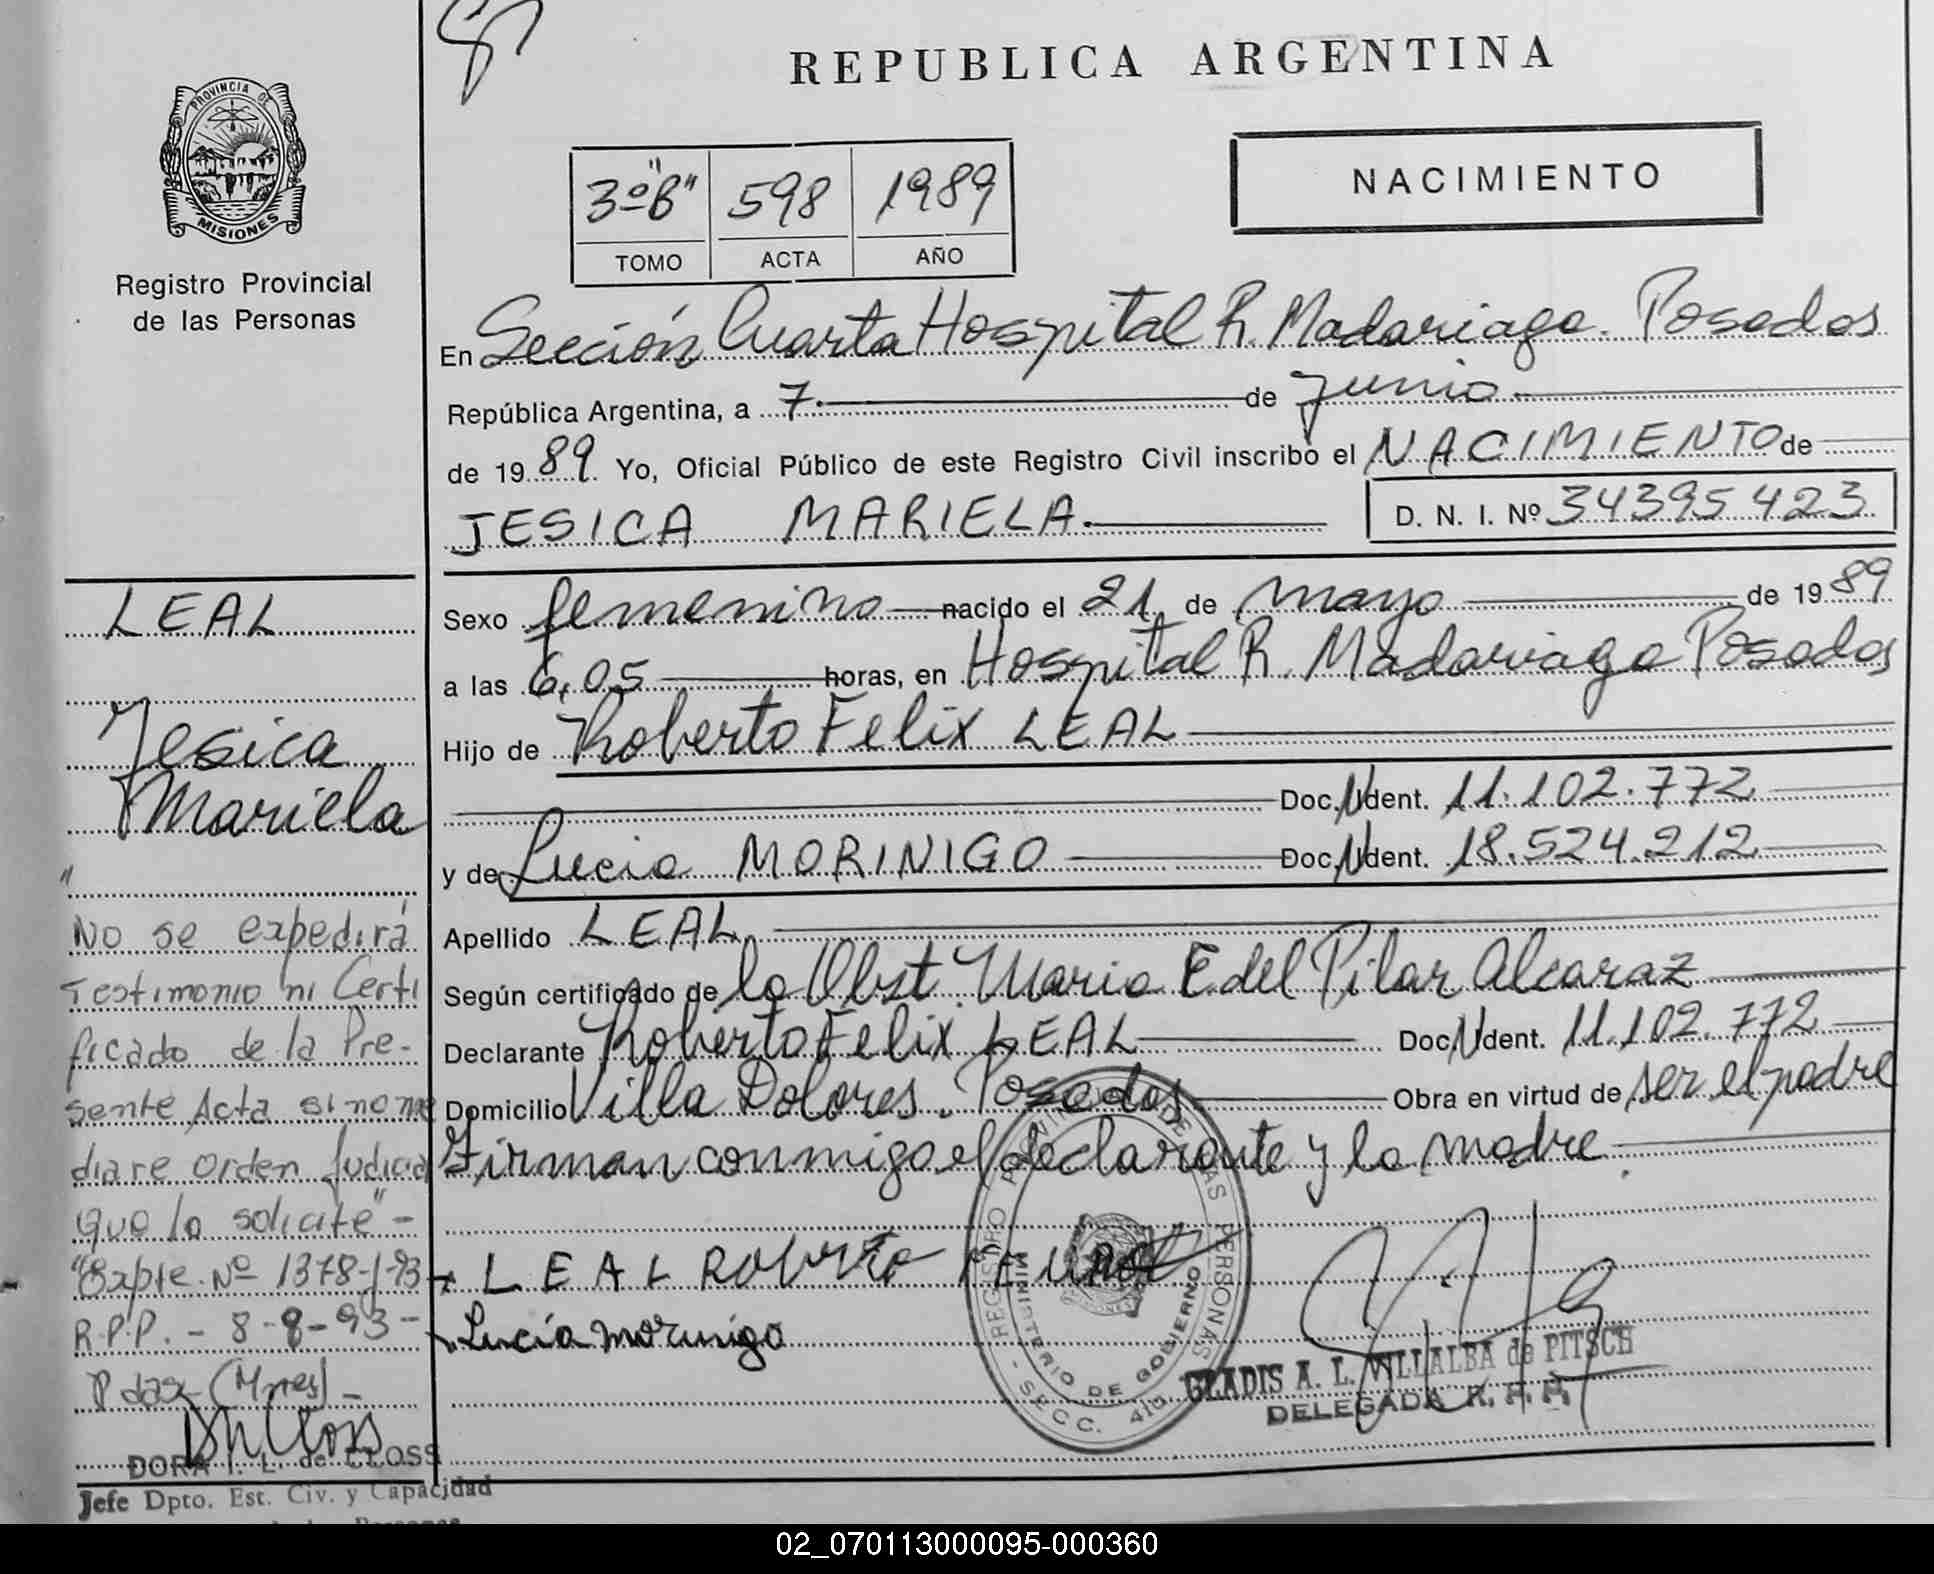 REPUBLICA ARGENTINA
PROVINCIA DE
MISIONES
Registro Provincial
de las Personas
3º "B" 598 1989
TOMO ACTA AÑO
NACIMIENTO
En Sección Cuarta Hospital R. Madariaga. Posadas
República Argentina, a 7 de junio
de 1989. Yo, Oficial Público de este Registro Civil inscribo el NACIMIENTO de
JESICA MARIELA. D. N. I. Nº 34395423
Sexo femenino nacido el 21 de mayo de 1989
a las 6,05 horas, en Hospital R. Madariaga Posadas
Hijo de Roberto Felix LEAL
Doc. N Ident. 11.102.772
y de Lucia MORINIGO Doc. N Ident. 18.524.212
Apellido LEAL
Según certificado de la Obst. Maria E del Pilar Alcaraz
Declarante Roberto Felix LEAL Doc. N Ident. 11.102.772
Domicilio Villa Dolores. Posadas Obra en virtud de ser el padre
Firman conmigo el declarante y la madre.
LEAL Roberto
Lucía morinigo
REGISTRO PROVINCIAL DE LAS PERSONAS
MINISTERIO DE GOBIERNO
- SECC. 4ta
GLADIS A. L. VILLALBA de PITSCH
DELEGADA R. P. P.
LEAL
Jesica
Mariela
"
No se expedirá
Testimonio ni Certi
ficado de la Pre-
sente Acta si no me
diare orden Judicial
que lo solicite" -
"Expte. Nº 1378-J-93
R.P.P. - 8-8-93 -
Pdas (Mnes) -
DORA I. L. de CLOSS
Jefe Dpto. Est. Civ. y Capacidad
02_070113000095-000360